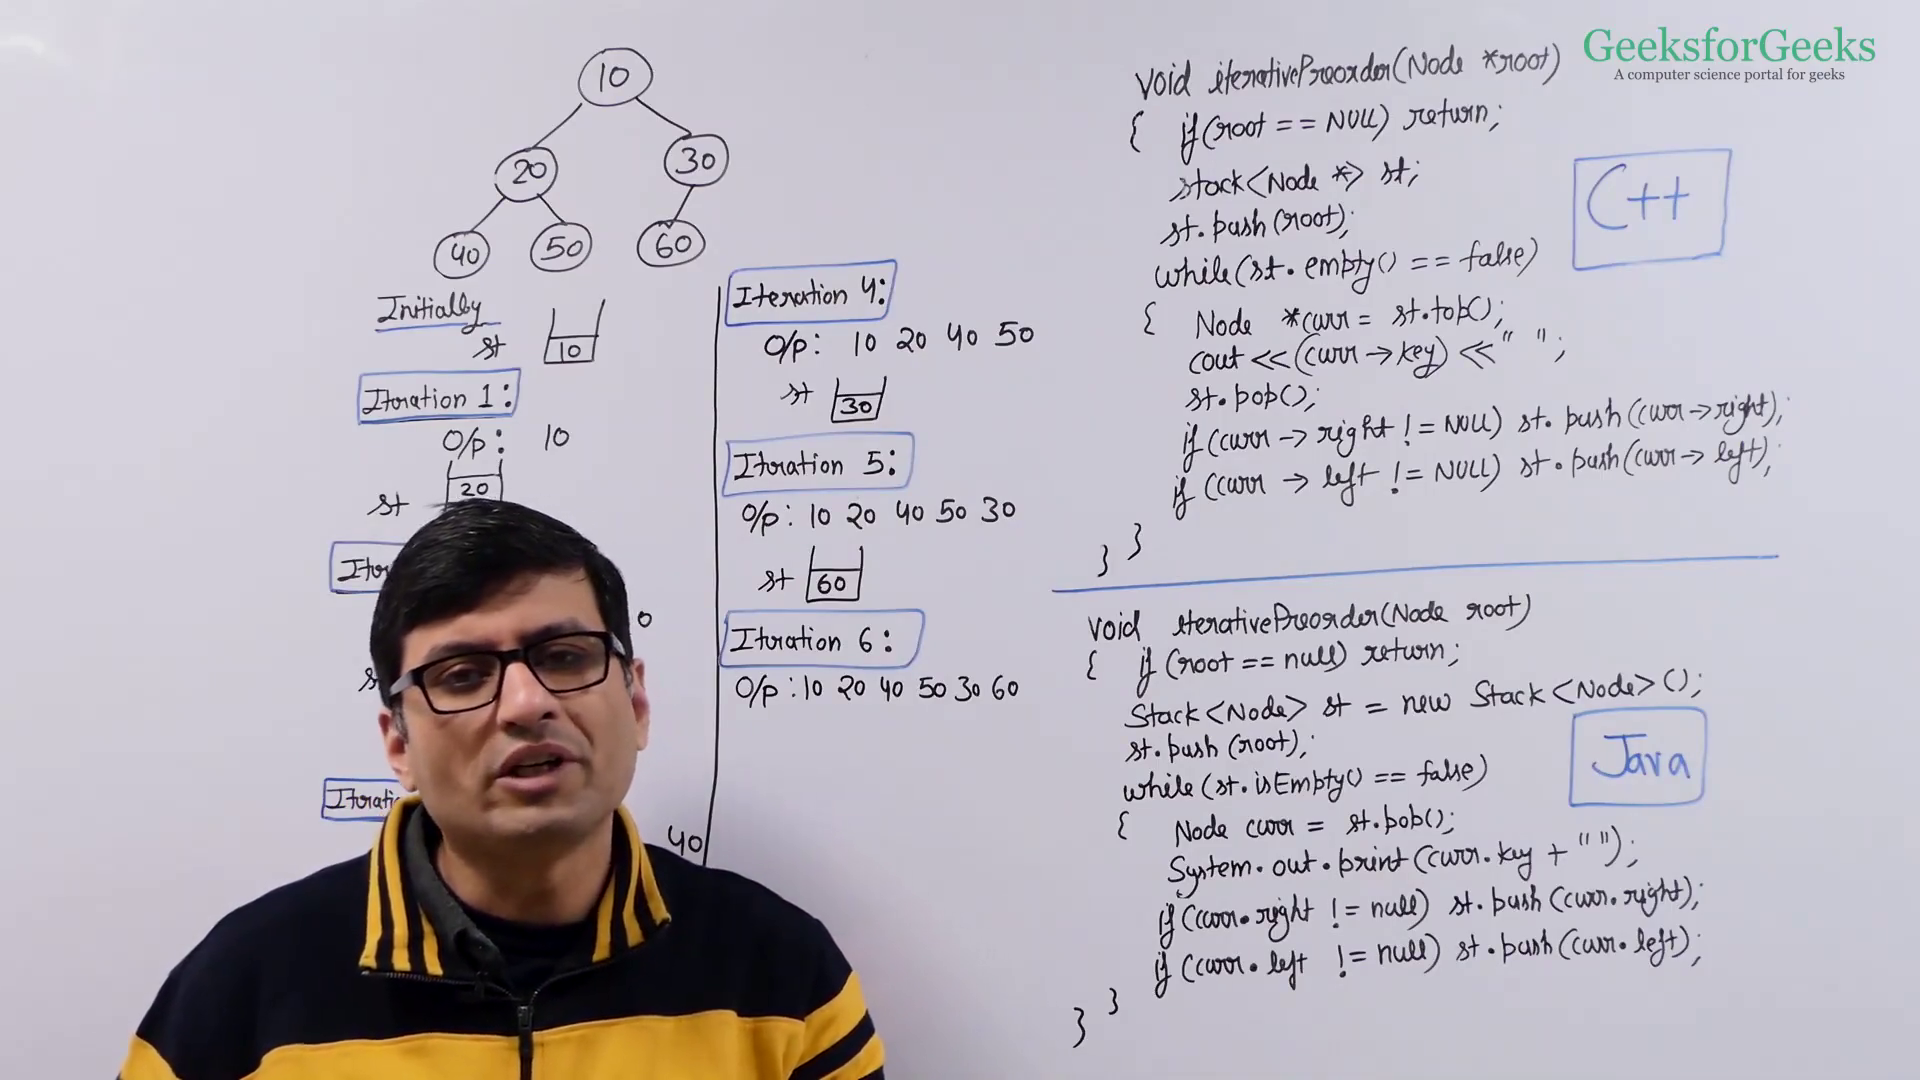 GeeksforGeeks
A computer science portal for geeks
10
20 30
40 50 60
Initially
st 10
Iteration 1:
O/p: 10
st 20
40
Iteration 4:
O/p: 10 20 40 50
st 30
Iteration 5:
O/p: 10 20 40 50 30
st 60
Iteration 6:
O/p: 10 20 40 50 30 60
void iterativePreorder(Node *root)
{ if(root == NULL) return;
stack<Node *> st;
st.push(root);
while(st.empty() == false)
{ Node *curr = st.top();
cout << (curr->key) << " ";
st.pop();
if(curr -> right != NULL) st.push(curr->right);
if(curr -> left != NULL) st.push(curr-> left);
} }
C++
void iterativePreorder(Node root)
{ if(root == null) return;
Stack<Node> st = new Stack<Node>();
st.push(root);
while(st.isEmpty() == false)
{ Node curr = st.pop();
System.out.print(curr.key + " ");
if(curr.right != null) st.push(curr.right);
if(curr.left != null) st.push(curr.left);
} }
Java